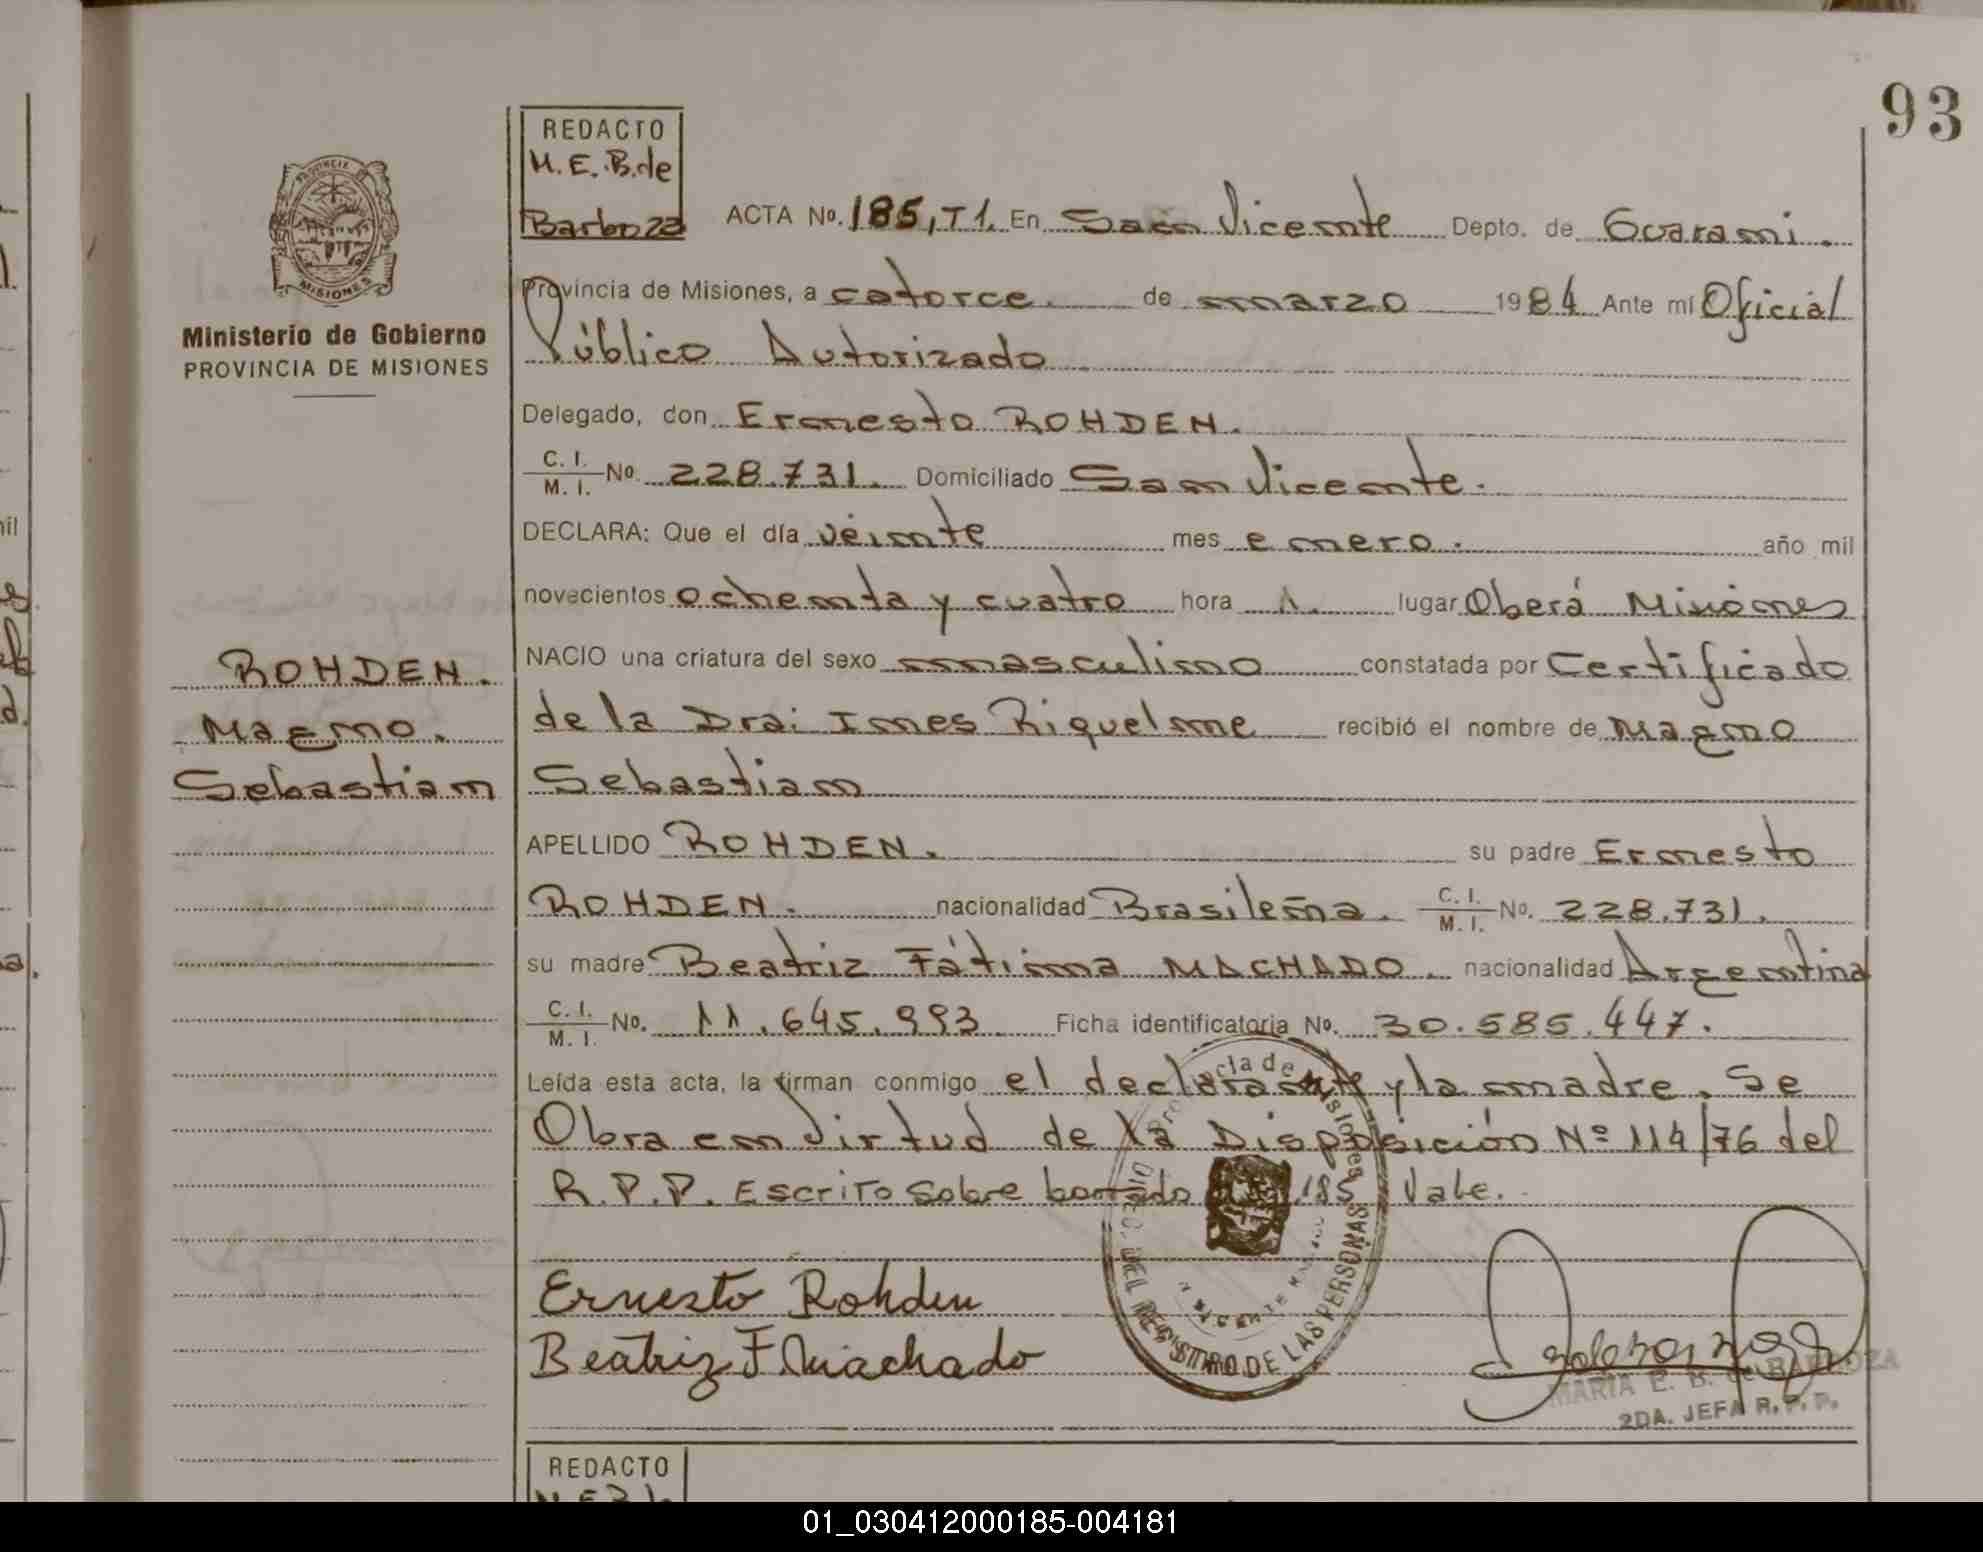 93
REDACTO
M. E. B. de
Barboza
ACTA No. 185, T1. En San Vicente Depto. de Guarani.
Provincia de Misiones, a catorce. de marzo 1984 Ante mí Oficial
Público Autorizado
Delegado, don Ernesto ROHDEN.
C. I. / M. I. No. 228.731. Domiciliado San Vicente.
DECLARA: Que el día veinte mes enero. año mil
novecientos ochenta y cuatro hora 1. lugar Oberá Misiones
NACIO una criatura del sexo masculino constatada por Certificado
de la Dra: Ines Riquelme recibió el nombre de Magno
Sebastian
APELLIDO ROHDEN. su padre Ernesto
ROHDEN. nacionalidad Brasileña. C. I. / M. I. No. 228.731.
su madre Beatriz Fátima MACHADO. nacionalidad Argentina
C. I. / M. I. No. 11.645.993 Ficha identificatoria No. 30.585.447.
Leída esta acta, la firman conmigo el declarante y la madre. Se
Obra en virtud de la Disposición Nº 114/76 del
R.P.P. Escrito sobre borrado 185 Vale.
Ernesto Rohden
Beatriz F. Machado
PROVINCIA DE
MISIONES
Ministerio de Gobierno
PROVINCIA DE MISIONES
ROHDEN.
Magno.
Sebastian
Provincia de Misiones
DIREC. DEL REGISTRO DE LAS PERSONAS
MARIA E. B. de BARBOZA
2DA. JEFA R. P. P.
REDACTO
01_030412000185-004181